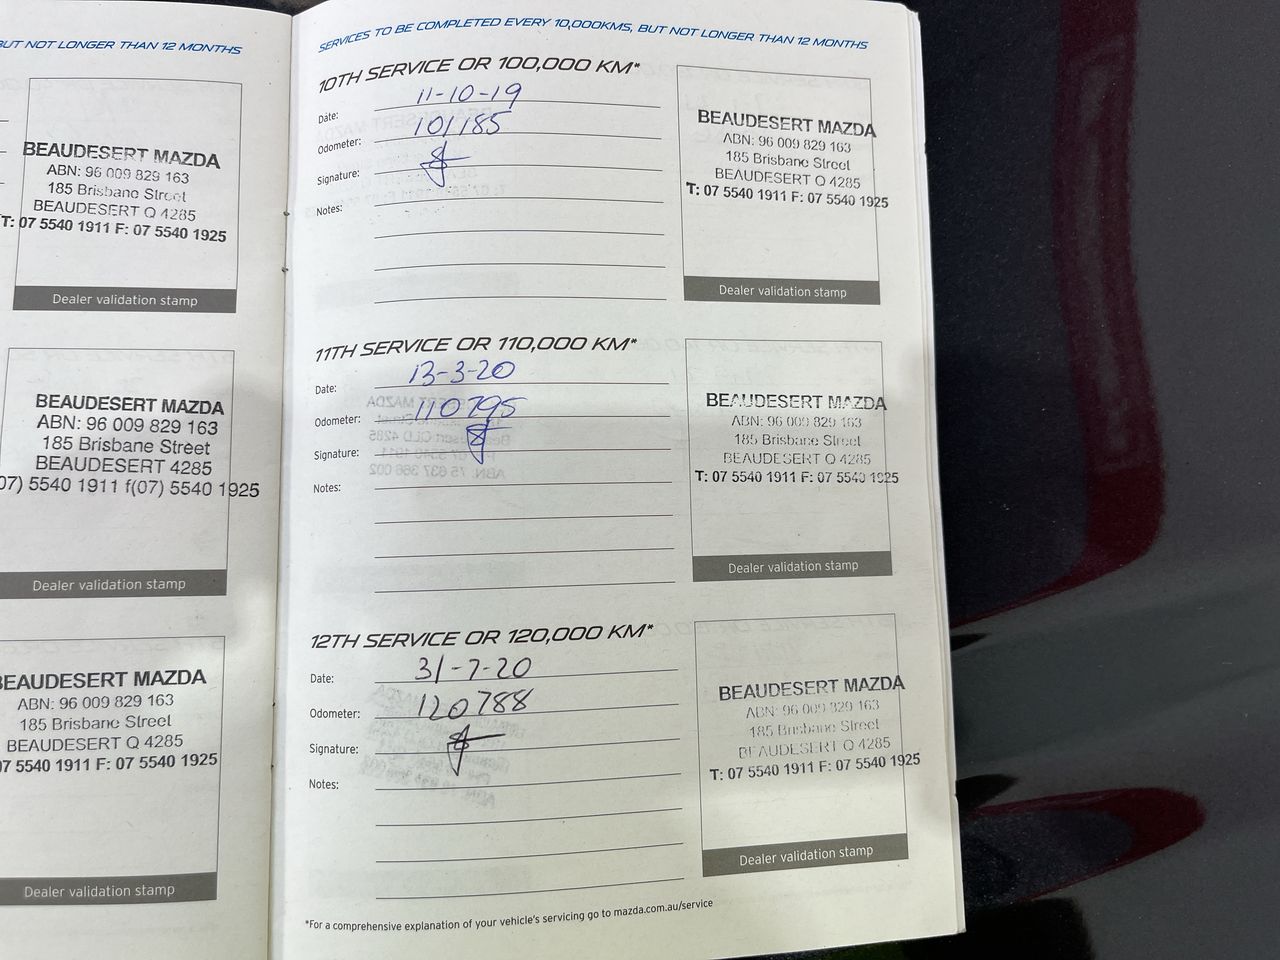 BUT NOT LONGER THAN 12 MONTHS
BEAUDESERT MAZDA
ABN: 96 009 829 163
185 Brisbane Street
BEAUDESERT Q 4285
T: 07 5540 1911 F: 07 5540 1925
Dealer validation stamp
BEAUDESERT MAZDA
ABN: 96 009 829 163
185 Brisbane Street
BEAUDESERT 4285
07) 5540 1911 f(07) 5540 1925
Dealer validation stamp
BEAUDESERT MAZDA
ABN: 96 009 829 163
185 Brisbane Street
BEAUDESERT Q 4285
07 5540 1911 F: 07 5540 1925
Dealer validation stamp
SERVICES TO BE COMPLETED EVERY 10,000KMS, BUT NOT LONGER THAN 12 MONTHS
10TH SERVICE OR 100,000 KM*
Date: 11-10-19
Odometer: 101185
Signature:
Notes:
BEAUDESERT MAZDA
ABN: 96 009 829 163
185 Brisbane Street
BEAUDESERT Q 4285
T: 07 5540 1911 F: 07 5540 1925
Dealer validation stamp
11TH SERVICE OR 110,000 KM*
Date: 13-3-20
Odometer: 110795
Signature:
Notes:
BEAUDESERT MAZDA
ABN: 96 009 829 163
185 Brisbane Street
BEAUDESERT Q 4285
T: 07 5540 1911 F: 07 5540 1925
Dealer validation stamp
12TH SERVICE OR 120,000 KM*
Date: 31-7-20
Odometer: 120788
Signature:
Notes:
BEAUDESERT MAZDA
ABN: 96 009 829 163
185 Brisbane Street
BEAUDESERT Q 4285
T: 07 5540 1911 F: 07 5540 1925
Dealer validation stamp
*For a comprehensive explanation of your vehicle's servicing go to mazda.com.au/service